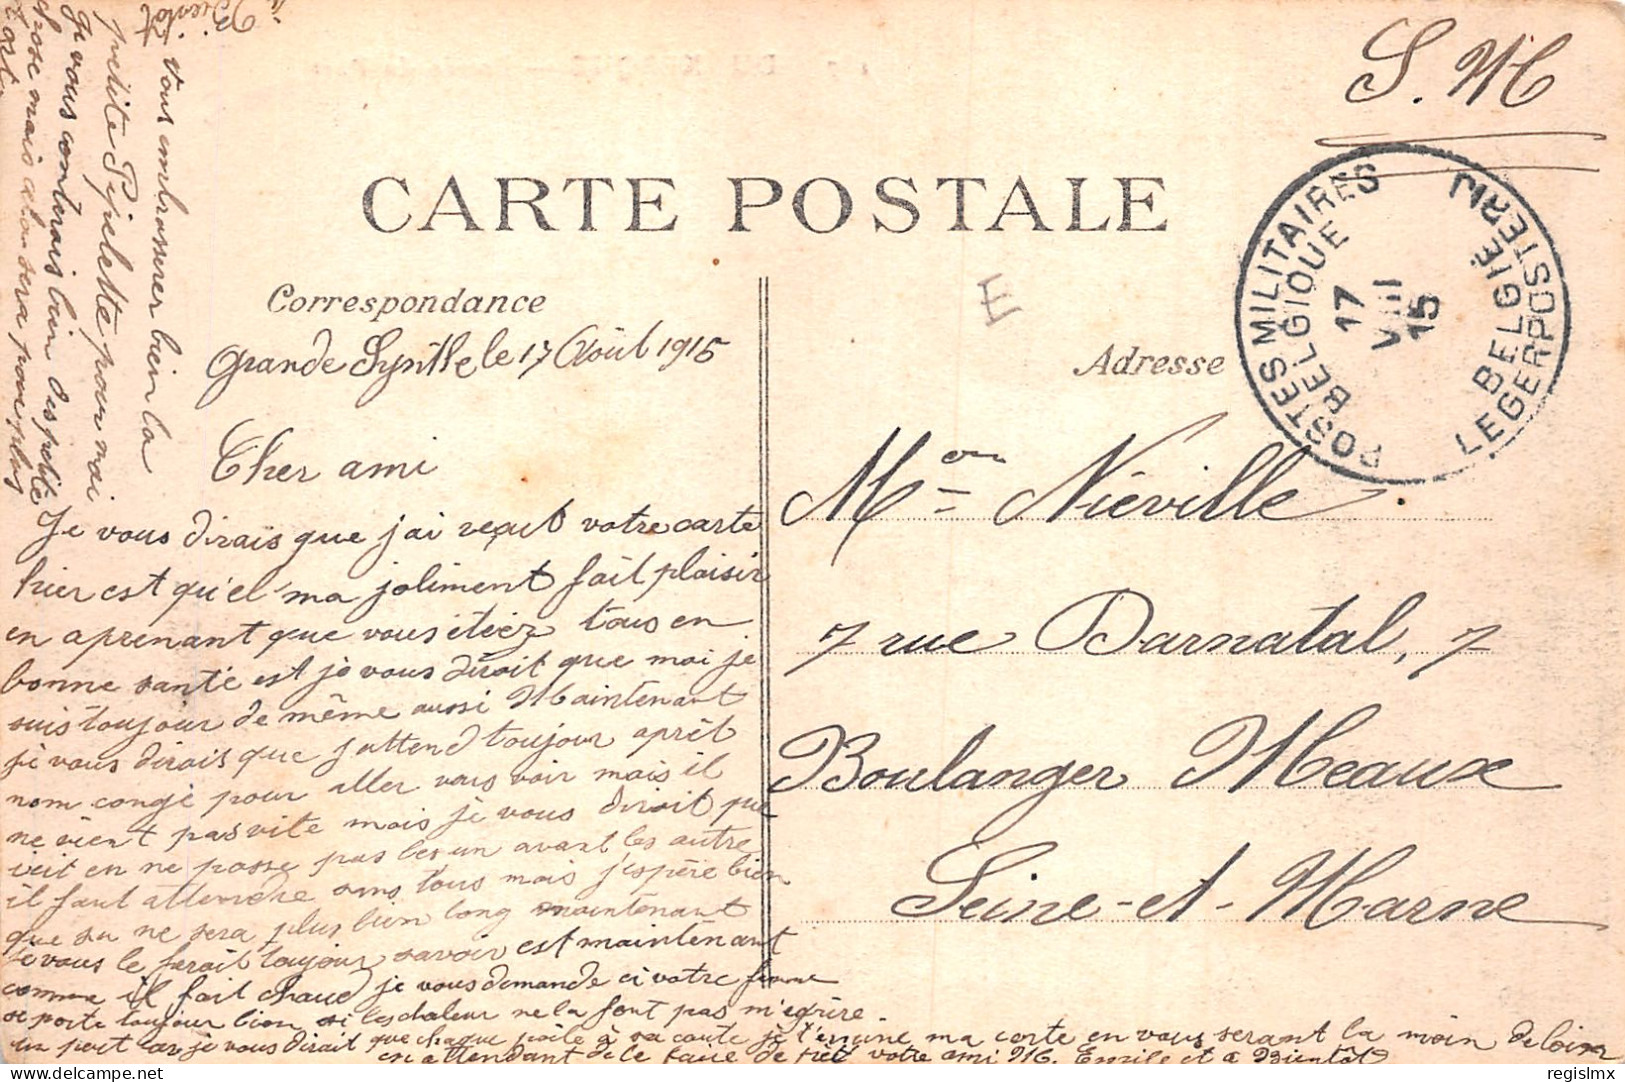 S. M
CARTE POSTALE
Correspondance
Adresse
E
POSTES MILITAIRES
BELGIQUE
17
VIII
15
BELGIË
LEGERPOSTERIJ
Grande Synthe le 17 Août 1915
Cher ami
Je vous dirais que j'ai reçut votre carte
hier est qu'el ma joliment fait plaisir
en aprenant que vous étiez tous en
bonne santé est je vous diroit que moi je
suis toujour de même aussi Maintenant
je vous dirais que j'attend toujour aprêt
mom congé pour aller vous voir mais il
ne vient pas vite mais je vous diroit que
en ne passe pas les un avant les autre
il faut attendre sans tous mais j'espére bien
que sa ne sera plus bien long maintenant
je vous le ferait toujour savoir est maintenant
comme il fait chaud je vous demande ci votre femme
se porte toujour bien si les chaleur ne la font pas m'égrire.
un petit car je vous dirait que chaque poile à sa coute je termine ma carte en vous serant la main de loin
en attendant de le faire de pret votre ami M. Emile et a Bientôt
Je vous conterais bien des petite
chose mais cela sera pour plus
tart
vous embrasser bien la
petite Pijelette pour moi
a Bientot
Mon Niéville
7 rue Darnatal, 7
Boulanger Meaux
Seine-et-Marne
regislmx